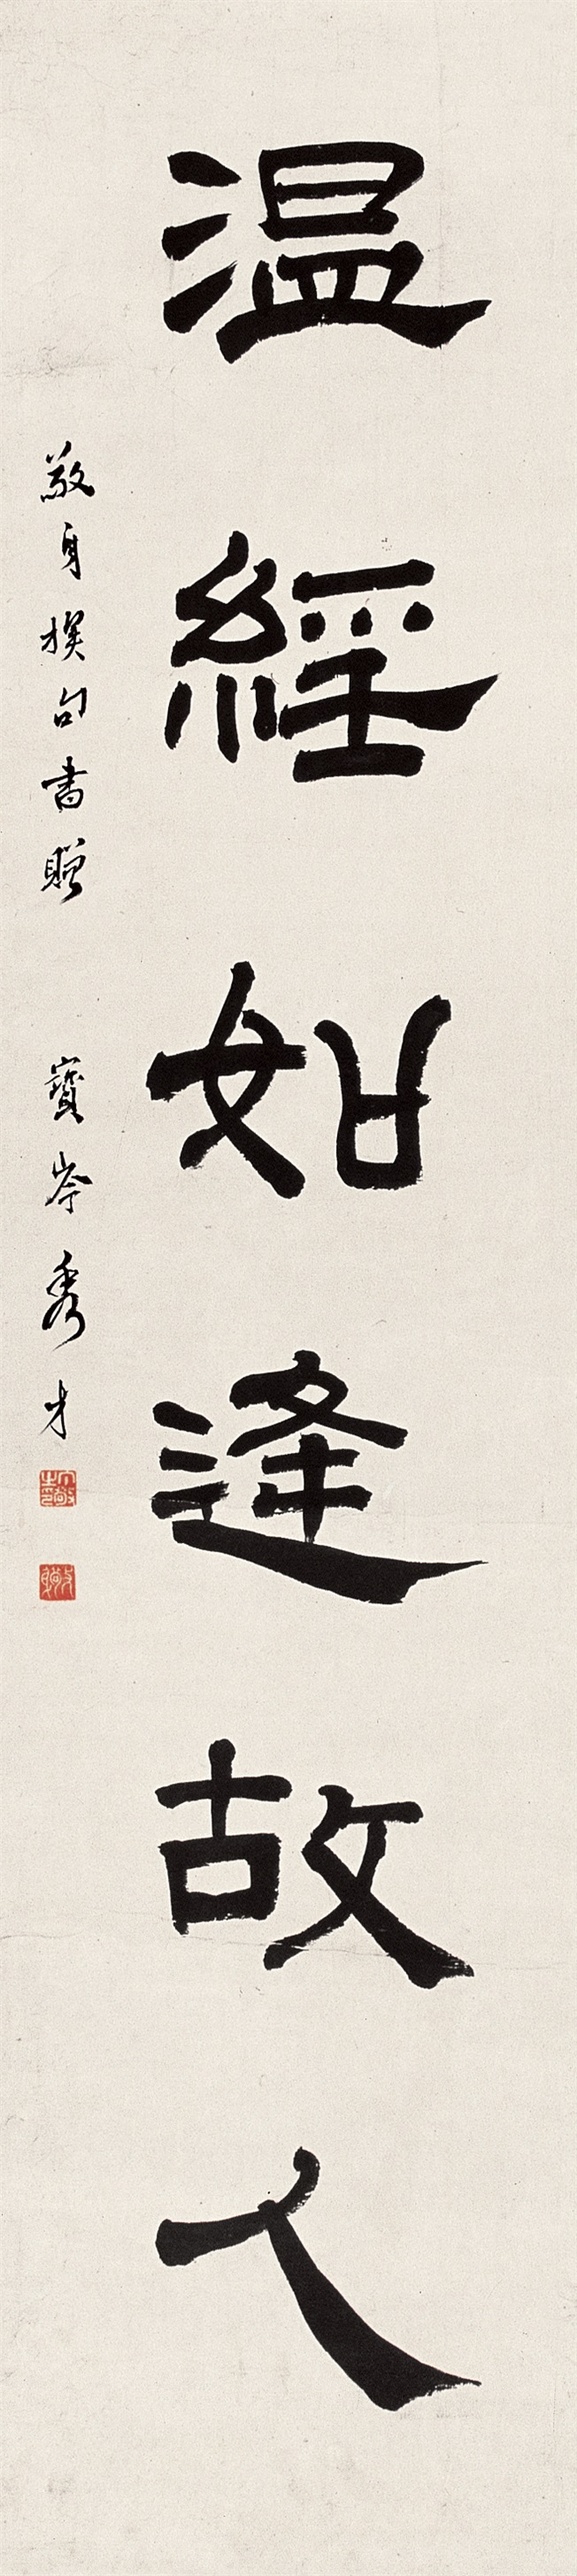 温經如逢故人
敬身撰句書贈 寶岑秀才